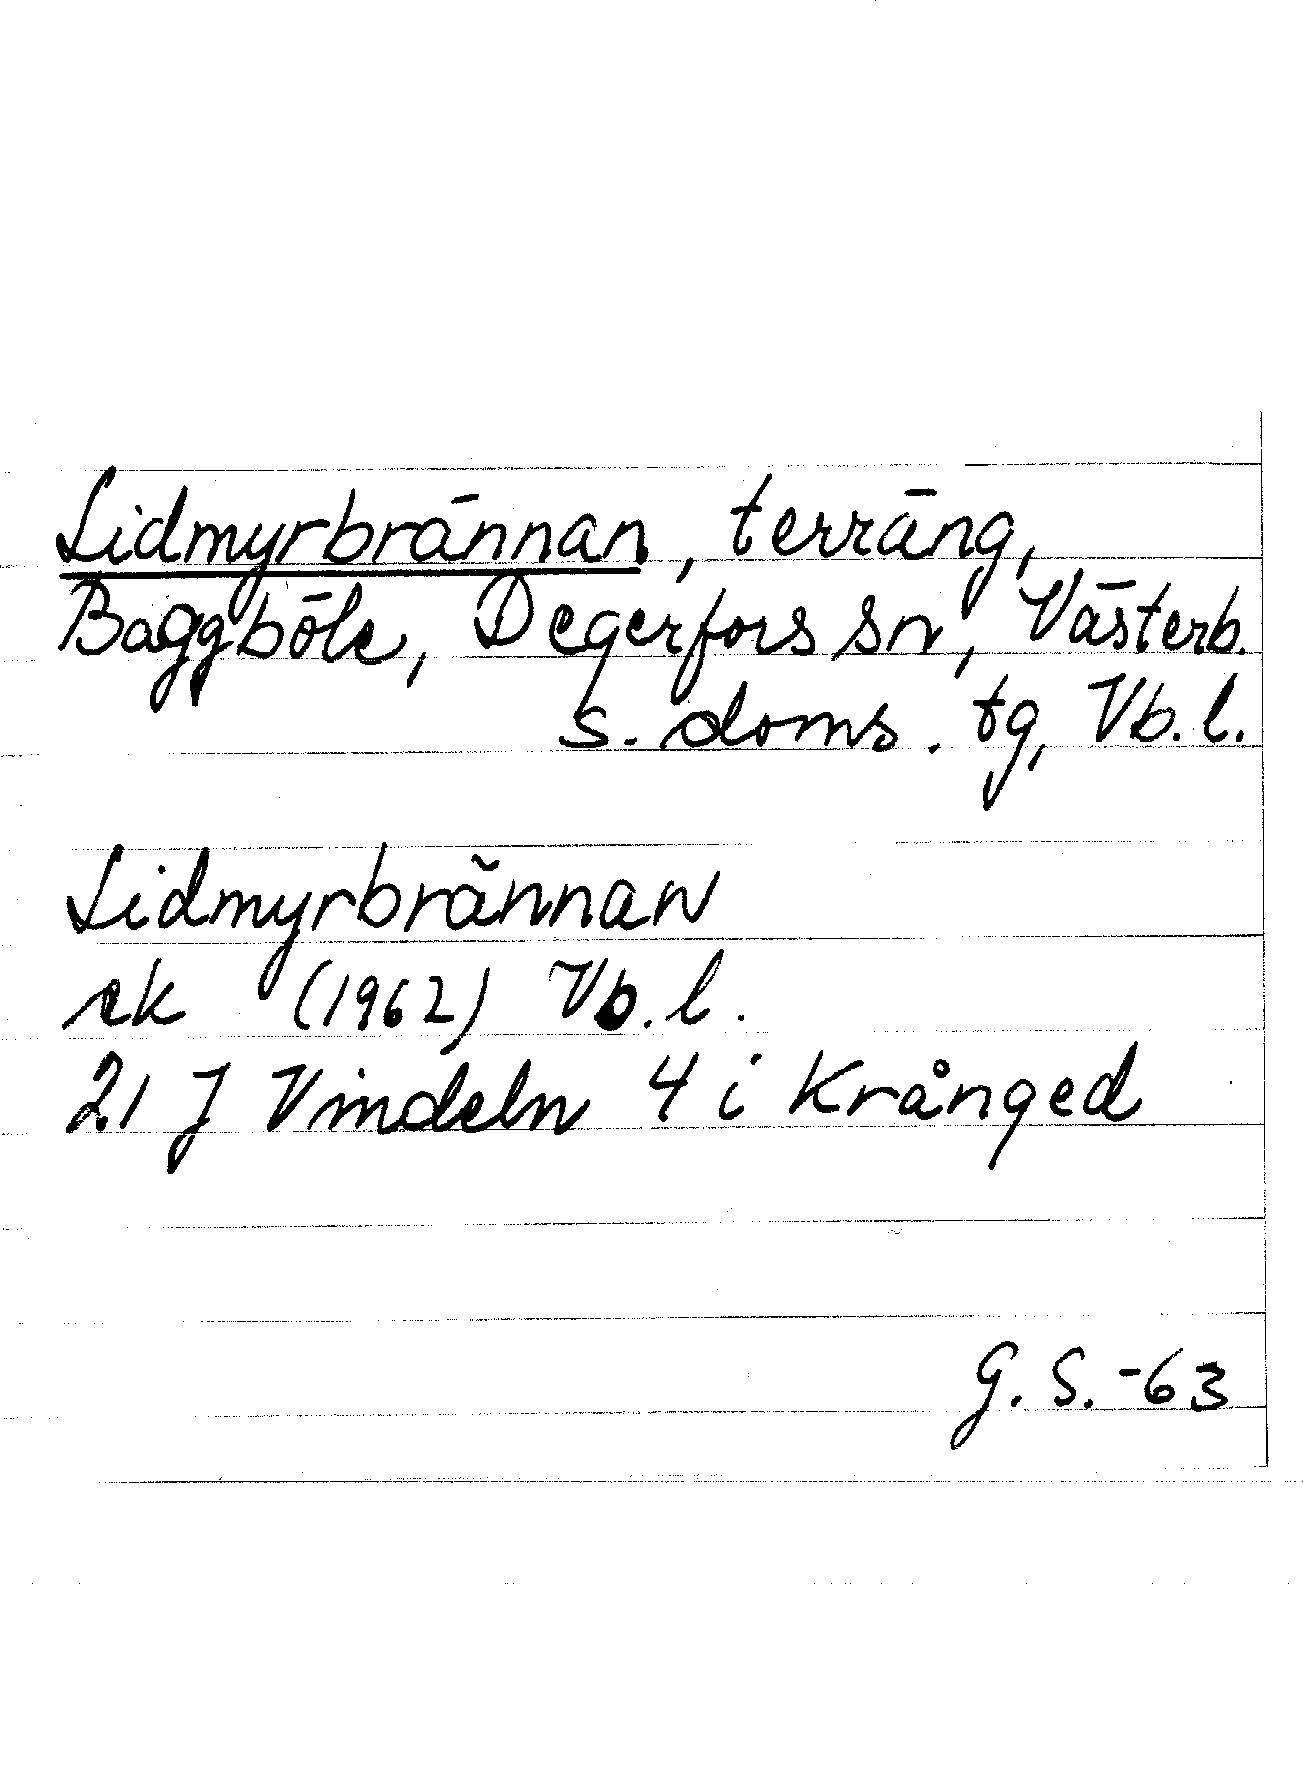 Lidmyrbrännan, terräng,
Baggböle, Degerfors sn, Västerb.
s. doms. tg, Vb. l.
Lidmyrbrännan
ek (1962) Vb. l.
21 J Vindeln 4 i Krånged
G. S. -63